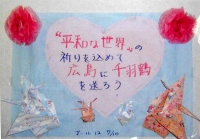 "平和な世界"の
祈りを込めて
広島に千羽鶴
を送ろう